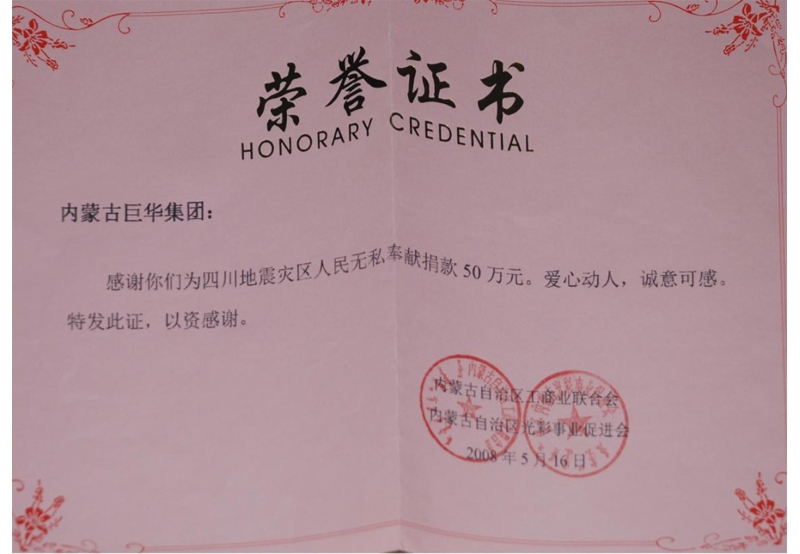 荣誉证书
HONORARY CREDENTIAL
内蒙古巨华集团：
感谢你们为四川地震灾区人民无私奉献捐款 50 万元。爱心动人，诚意可感。
特发此证，以资感谢。
内蒙古自治区工商业联合会
内蒙古自治区光彩事业促进会
2008 年 5 月 16 日